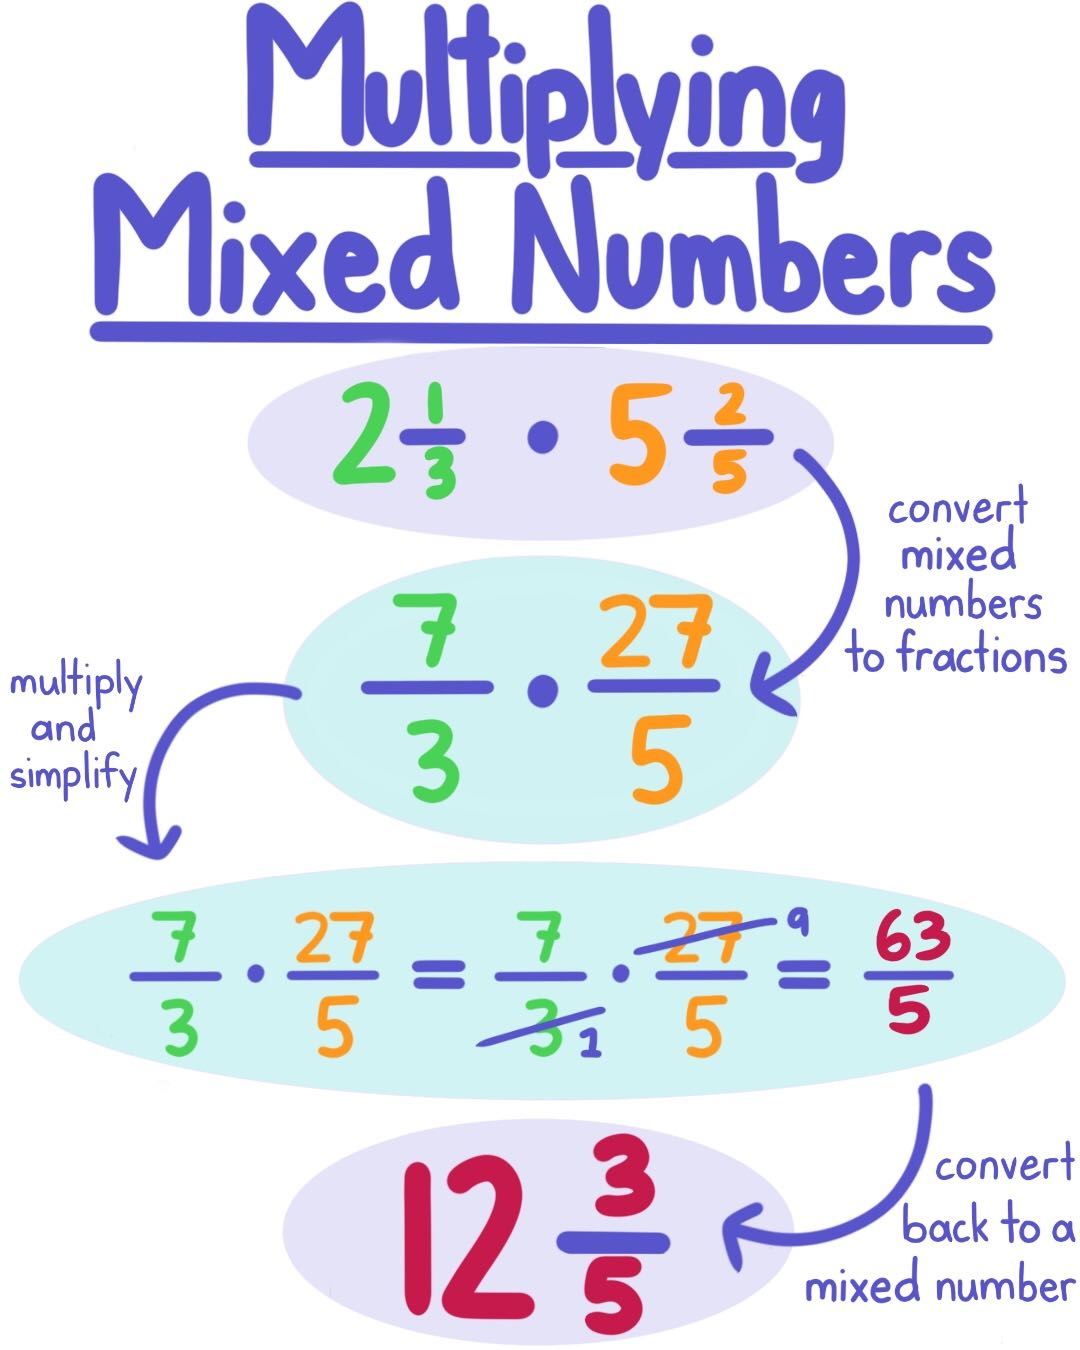 Multiplying
Mixed Numbers
2 1/3 • 5 2/5
convert
mixed
numbers
to fractions
7/3 • 27/5
multiply
and
simplify
7/3 • 27/5 = 7/3 1 • 27/5 9 = 63/5
12 3/5
convert
back to a
mixed number